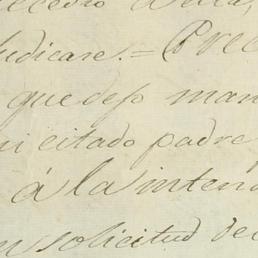 judicare.= Prec
que dejo man
mi citado padre
á la inten
en solicitud de